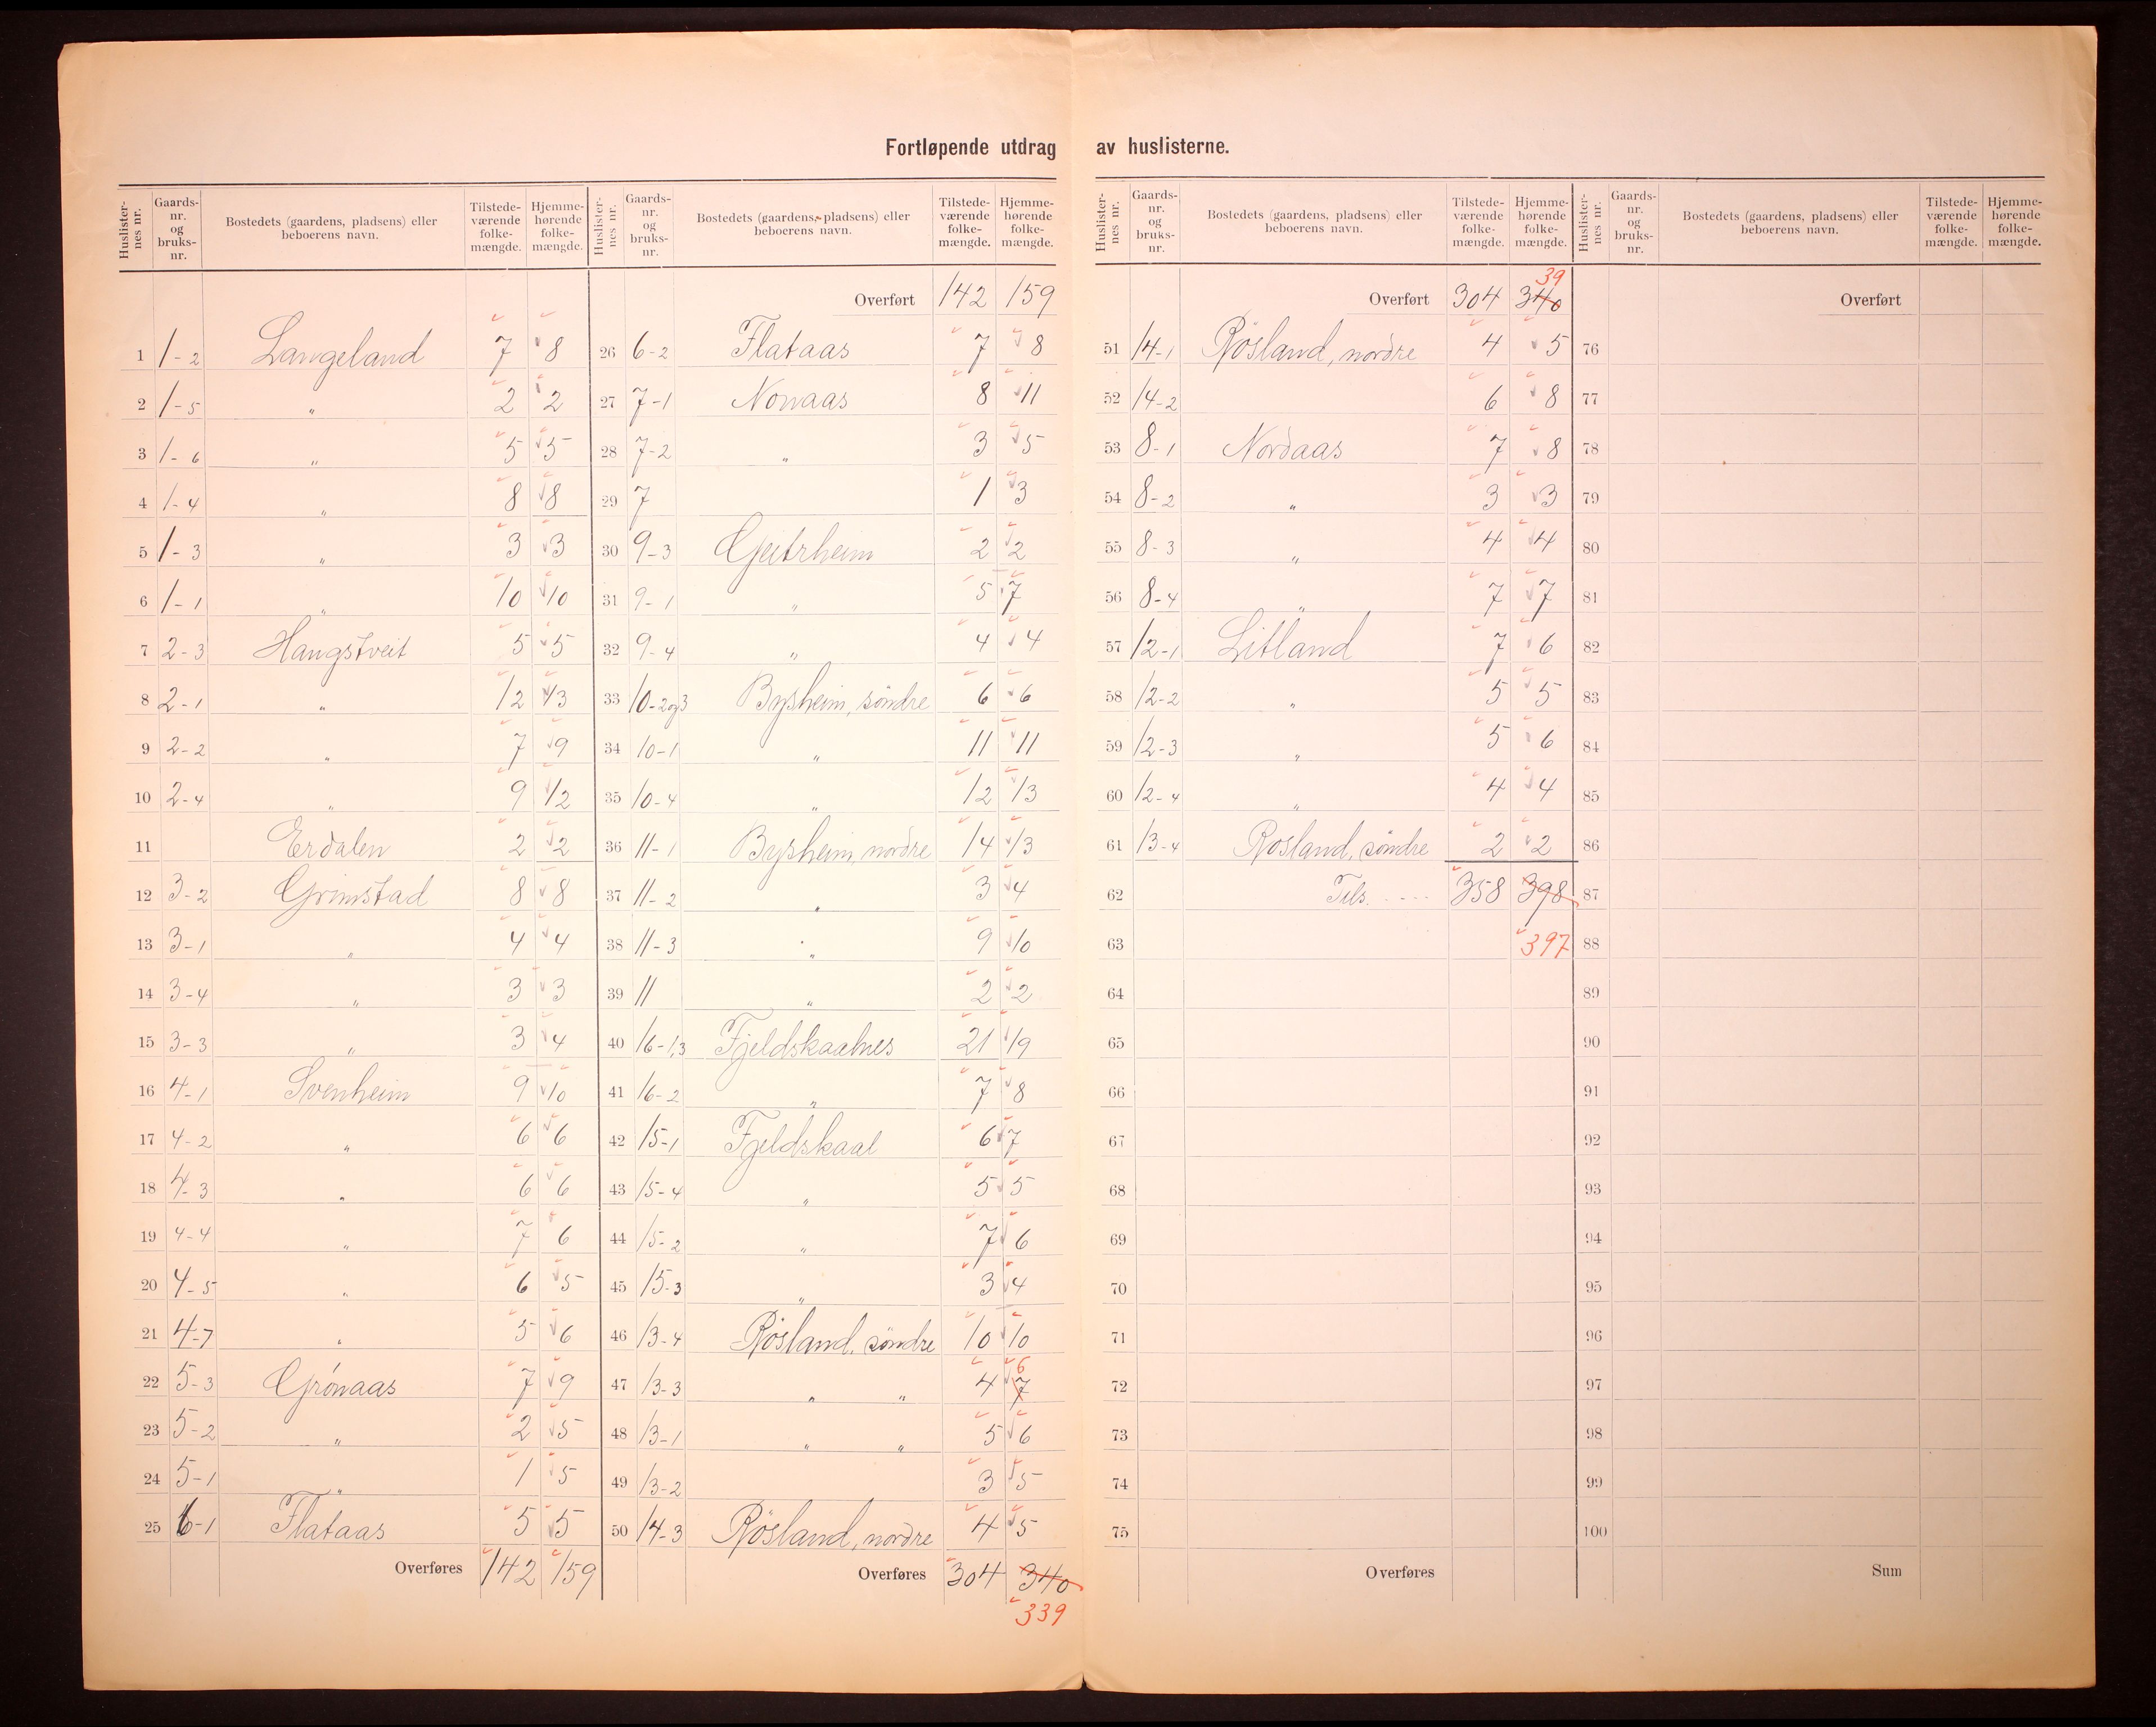 Fortløpende utdrag av huslisterne.
Huslisternes nr. Gaards-nr. og bruks-nr. Bostedets (gaardens, pladsens) eller beboerens navn. Tilstede-værende folke-mængde. Hjemme-hørende folke-mængde.
1 1-2 Langeland 7 8
2 1-5 " 2 2
3 1-6 " 5 5
4 1-4 " 8 8
5 1-3 " 3 3
6 1-1 " 10 10
7 2-3 Haugstveit 5 5
8 2-1 " 12 13
9 2-2 " 7 9
10 2-4 " 9 12
11 Erdalen 2 2
12 3-2 Grimstad 8 8
13 3-1 " 4 4
14 3-4 " 3 3
15 3-3 " 3 4
16 4-1 Svenheim 9 10
17 4-2 " 6 6
18 4-3 " 6 6
19 4-4 " 7 6
20 4-5 " 6 5
21 4-7 " 5 6
22 5-3 Grønaas 7 9
23 5-2 " 2 5
24 5-1 " 1 5
25 6-1 Flataas 5 5
Overføres 142 159
Huslisternes nr. Gaards-nr. og bruks-nr. Bostedets (gaardens, pladsens) eller beboerens navn. Tilstede-værende folke-mængde. Hjemme-hørende folke-mængde.
Overført 142 159
26 6-2 Flataas 7 8
27 7-1 Nonaas 8 11
28 7-2 " 3 5
29 7 1 3
30 9-3 Gjeitrheim 2 2
31 9-1 " 5 7
32 9-4 " 4 4
33 10-2og3 Bysheim, søndre 6 6
34 10-1 " 11 11
35 10-4 " 12 13
36 11-1 Bysheim, nordre 14 13
37 11-2 " 3 4
38 11-3 " 9 10
39 11 " 2 2
40 16-1,3 Fjeldskaalnes 21 19
41 16-2 " 7 8
42 15-1 Fjeldskaal 6 7
43 15-4 " 5 5
44 15-2 " 7 6
45 15-3 " 3 4
46 13-4 Røsland, søndre 10 10
47 13-3 " " 4 7 6
48 13-1 " " 5 6
49 13-2 3 5
50 14-3 Røsland, nordre 4 5
Overføres 304 340
339
Huslisternes nr. Gaards-nr. og bruks-nr. Bostedets (gaardens, pladsens) eller beboerens navn. Tilstede-værende folke-mængde. Hjemme-hørende folke-mængde.
39
Overført 304 340
51 14-1 Røsland, nordre 4 5
52 14-2 6 8
53 8-1 Nordaas 7 8
54 8-2 " 3 3
55 8-3 " 4 4
56 8-4 " 7 7
57 12-1 Litland 7 6
58 12-2 " 5 5
59 12-3 " 5 6
60 12-4 " 4 4
61 13-4 Rosland, søndre 2 2
62 Tils. .... 358 398
63 397
64
65
66
67
68
69
70
71
72
73
74
75
Overføres
Huslisternes nr. Gaards-nr. og bruks-nr. Bostedets (gaardens, pladsens) eller beboerens navn. Tilstede-værende folke-mængde. Hjemme-hørende folke-mængde.
Overført
76
77
78
79
80
81
82
83
84
85
86
87
88
89
90
91
92
93
94
95
96
97
98
99
100
Sum